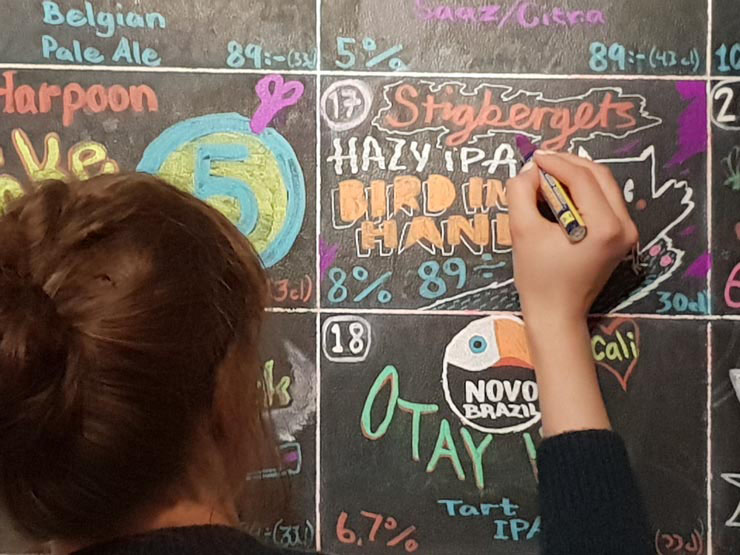 Belgian
Pale Ale
89:-(33
Saaz/Citra
5%
89:-(43 cl)
10
Harpoon
5
3cl)
17
Stigbergets
HAZY IPA
BIRD IN
HAND
8%
89:-
30cl
2
18
Cali
NOVO
BRAZIL
OTAY
Tart
IPA
6,7%
(33cl)
(33cl)